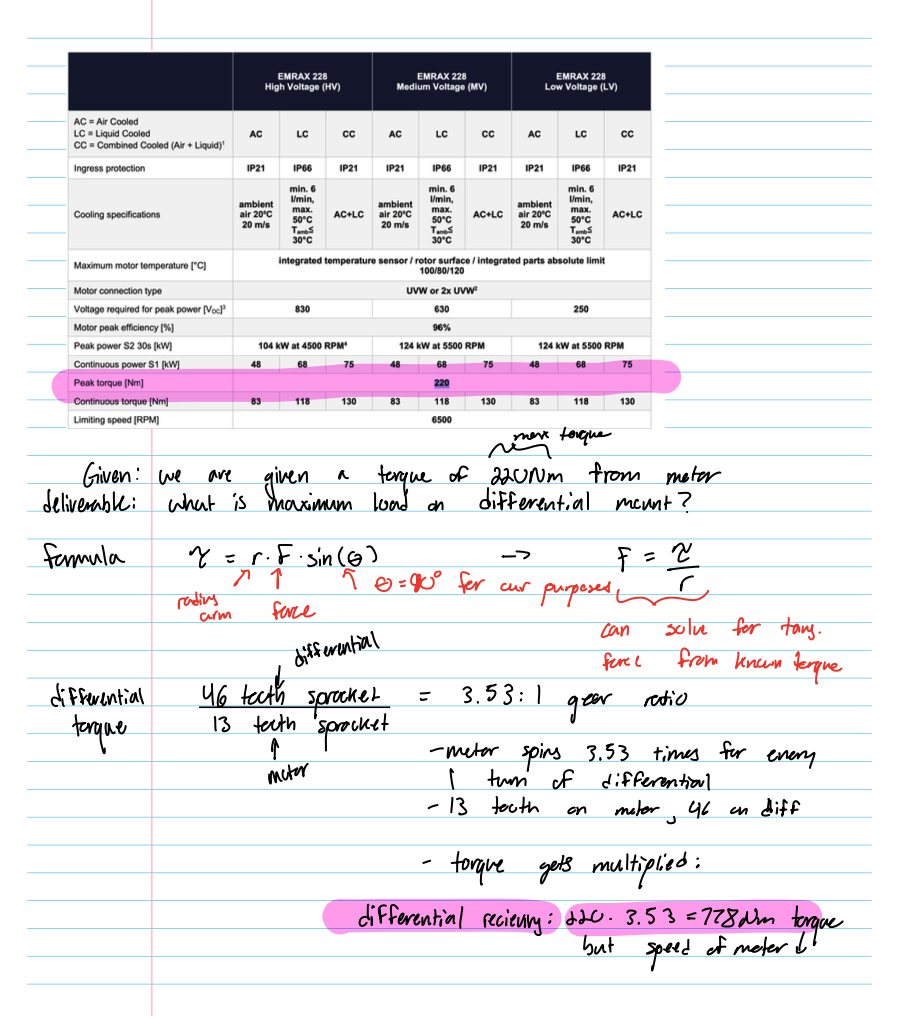 EMRAX 228 High Voltage (HV) EMRAX 228 Medium Voltage (MV) EMRAX 228 Low Voltage (LV)
AC = Air Cooled
LC = Liquid Cooled
CC = Combined Cooled (Air + Liquid)¹ AC LC CC AC LC CC AC LC CC
Ingress protection IP21 IP66 IP21 IP21 IP66 IP21 IP21 IP66 IP21
Cooling specifications ambient air 20°C 20 m/s min. 6 l/min, max. 50°C Tamb≤ 30°C AC+LC ambient air 20°C 20 m/s min. 6 l/min, max. 50°C Tamb≤ 30°C AC+LC ambient air 20°C 20 m/s min. 6 l/min, max. 50°C Tamb≤ 30°C AC+LC
Maximum motor temperature [°C] integrated temperature sensor / rotor surface / integrated parts absolute limit 100/80/120
Motor connection type UVW or 2x UVW²
Voltage required for peak power [VDC]³ 830 630 250
Motor peak efficiency [%] 96%
Peak power S2 30s [kW] 104 kW at 4500 RPM⁴ 124 kW at 5500 RPM 124 kW at 5500 RPM
Continuous power S1 [kW] 48 68 75 48 68 75 48 68 75
Peak torque [Nm] 220
Continuous torque [Nm] 83 118 130 83 118 130 83 118 130
Limiting speed [RPM] 6500
torque
Given: we are given a torque of 220Nm from motor
deliverable: what is maximum load on differential mount?
formula τ = r · F · sin(θ) → F = τ / r
θ = 90° for our purposes
radius arm
force
can solve for tang.
force from known torque
differential
differential torque 46 teeth sprocket / 13 teeth sprocket = 3.53 : 1 gear ratio
motor
- motor spins 3.53 times for every
1 turn of differential
- 13 teeth on motor, 46 on diff
- torque gets multiplied:
differential recieving: 220 · 3.53 = 778 Nm torque
but speed of motor ↓